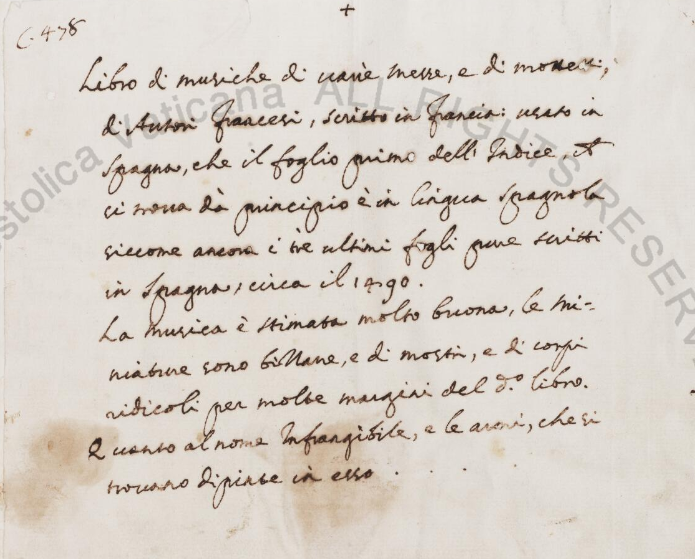 +
C. 478
Libro di musiche di varie messe, e di mottetti,
di Autori francesi, scritto in francia: usato in
Spagna, che il foglio primo dell' Indice,
ci trova dà principio è in lingua spagnola
siccome ancora i trè ultimi fogli pure scritti
in Spagna, circa il 1490.
La musica è stimata molto buona, le mi=
niature sono bizzare, e di mostri, e di corpi
ridicoli per molte margini del d.o libro.
Quanto al nome Infrangibile, e le armi, che si
trovano dipinte in esso . . . .
Apostolica Vaticana ALL RIGHTS RESERV